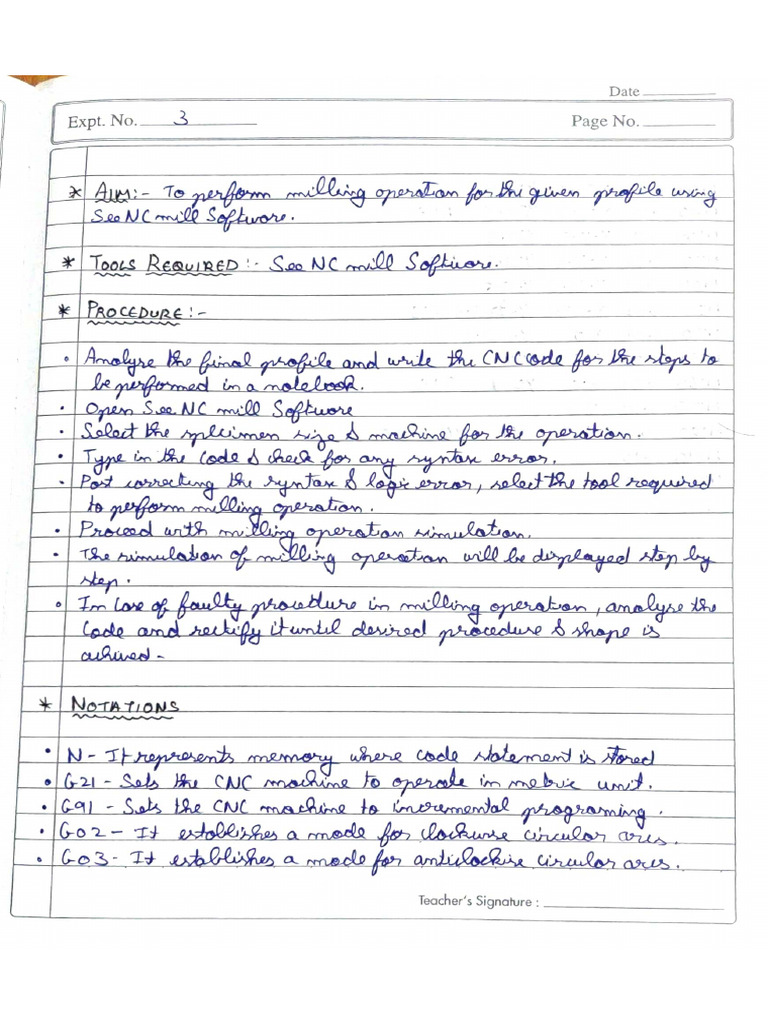 Date
Expt. No. 3 Page No.
* AIM:- To perform milling operation for the given profile using
See NC mill Software.
* TOOLS REQUIRED:- See NC mill Software.
* PROCEDURE:-
• Analyse the final profile and write the CNC code for the steps to
be performed in a notebook.
• Open See NC mill Software
• Select the specimen size & machine for the operation.
• Type in the code & check for any syntax error.
• Post correcting the syntax & logic error, select the tool required
to perform milling operation.
• Proceed with milling operation simulation.
• The simulation of milling operation will be displayed step by
step.
• In case of faulty procedure in milling operation, analyse the
code and rectify it until desired procedure & shape is
achived-
* NOTATIONS
• N - It represents memory where code statement is stored
• G21 - Sets the CNC machine to operate in metric unit.
• G91 - Sets the CNC machine to incremental programing.
• G02 - It establishes a mode for clockwise circular arcs.
• G03 - It establishes a mode for anticlockise circular arcs.
Teacher's Signature :